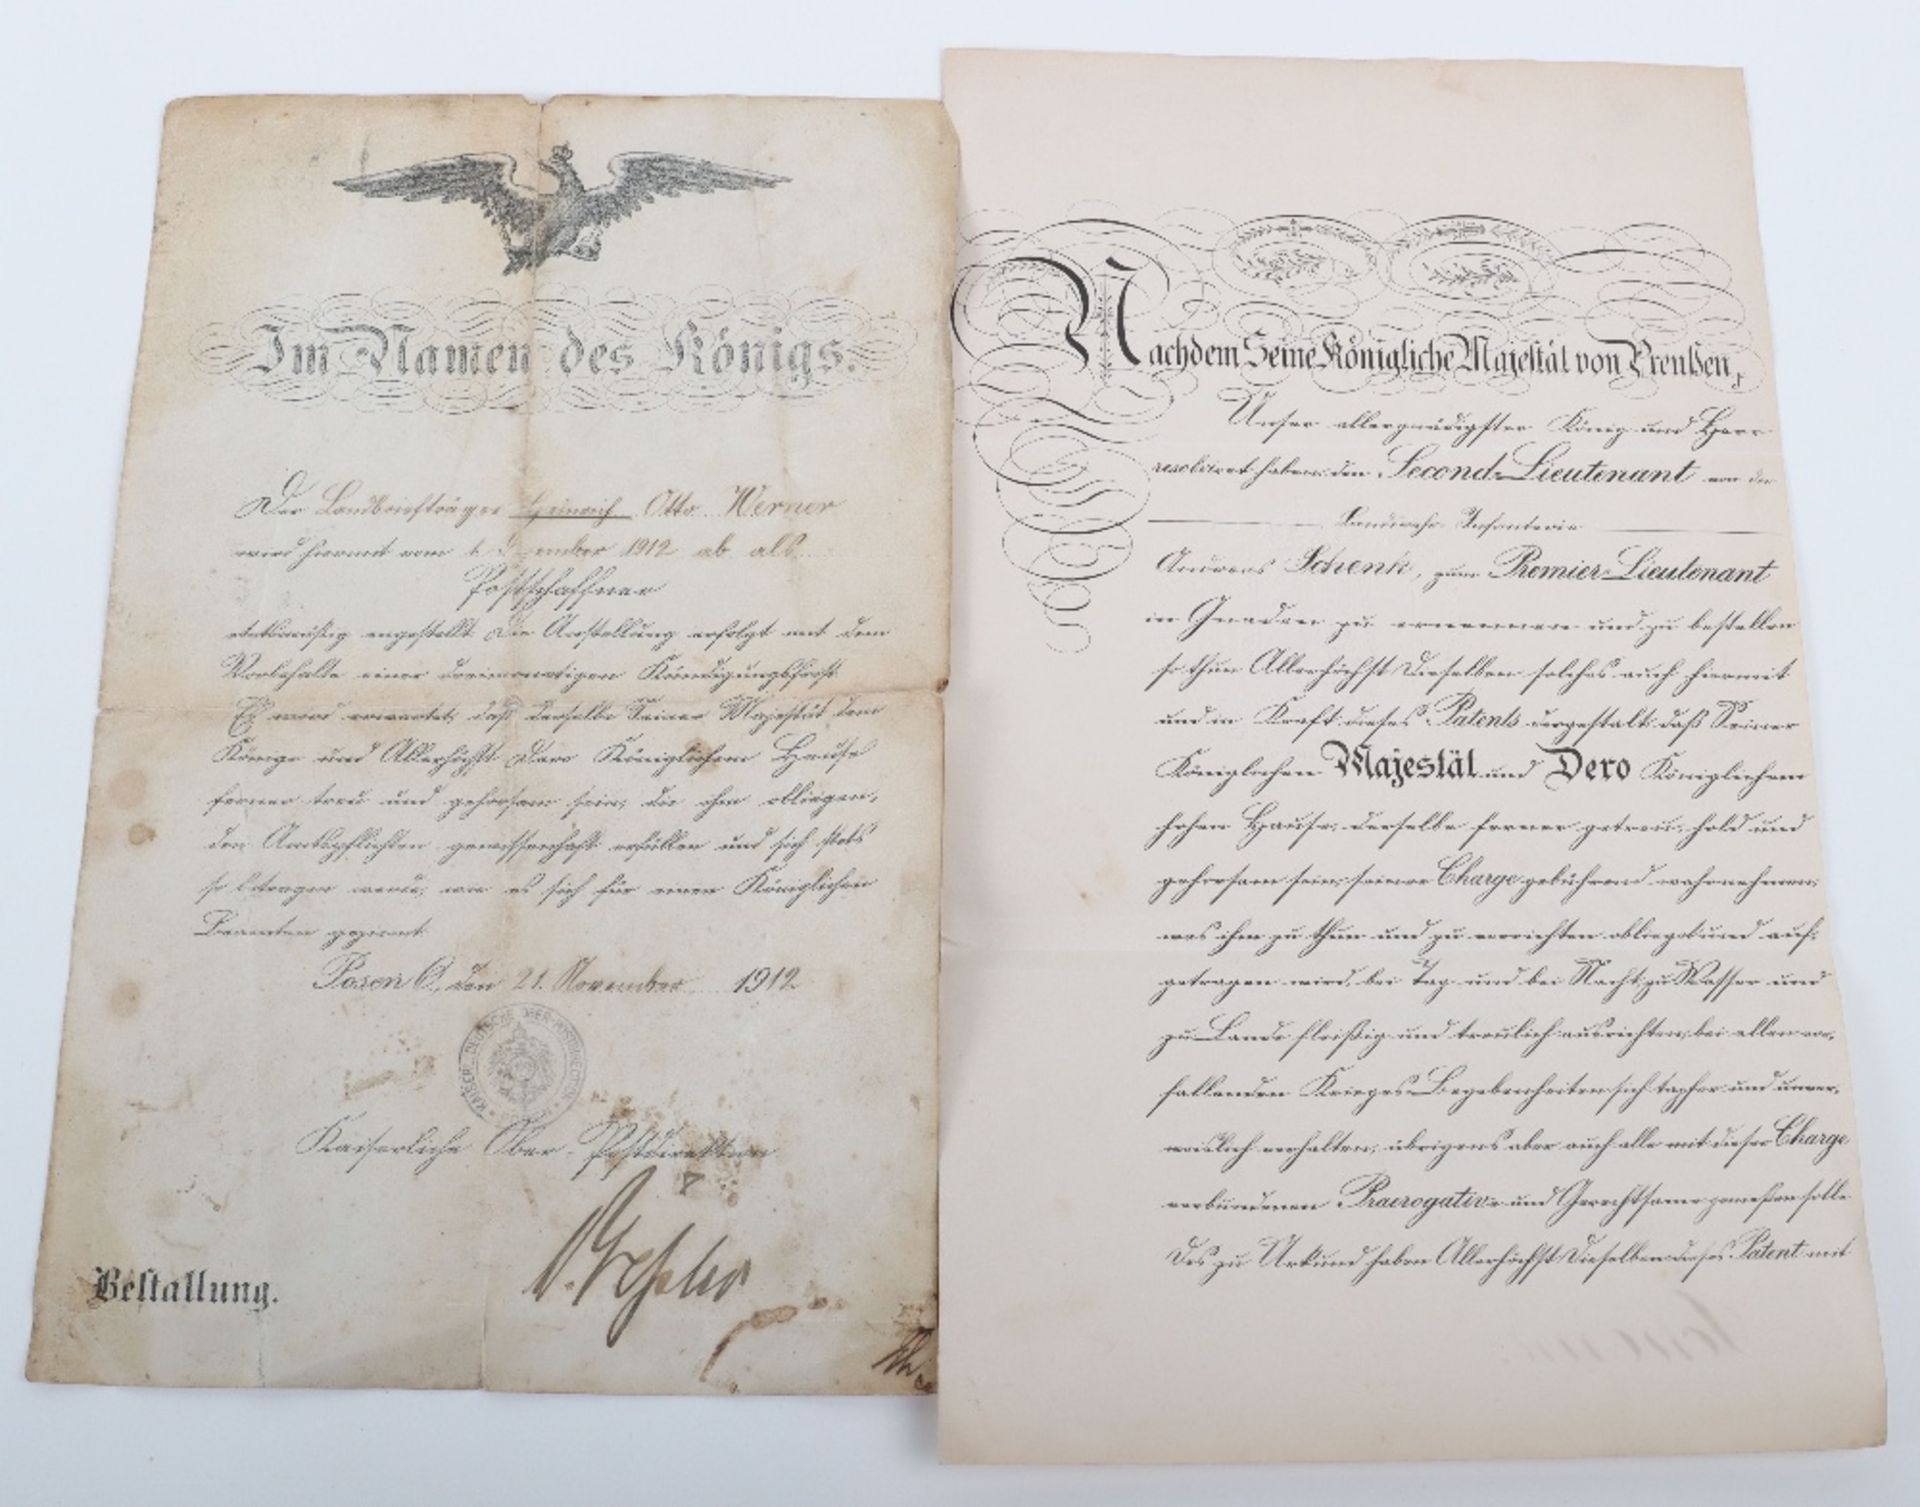 Im Namen des Königs.
Der Landbriefträger Heinrich Otto Werner
wird hiermit vom 1. Dezember 1912 ab als
Postschaffner
etatsmäßig angestellt. Die Anstellung erfolgt mit dem
Vorbehalte einer dreimonatigen Kündigungsfrist.
Es wird erwartet, daß derselbe Seiner Majestät dem
Könige und Allerhöchst Dero Königlichem Hause
ferner treu und gehorsam sein, die ihm obliegen-
den Amtspflichten gewissenhaft erfüllen und sich stets
so betragen werde, wie es sich für einen Königlichen
Beamten geziemt.
Posen O, den 21. November 1912
Kaiserliche Ober-Postdirektion
Bestallung.
Nachdem Seine Königliche Majestät von Preußen,
Unser allergnädigster König und Herr
resolvirt haben, den Second-Lieutenant von der
Landwehr Infanterie
Andreas Schenk, zum Premier-Lieutenant
in Gnaden zu ernennen und zu bestellen
so thun Allerhöchst Dieselben solches auch hiermit
und in Kraft dieses Patents dergestalt, daß Seiner
Königlichen Majestät und Dero Königlichem
hohen Hause, derselbe ferner getreu, hold und
gehorsam sein, seiner Charge gebührend wahrnehmen,
was ihm zu thun und zu verrichten obliegt und auf-
getragen wird, bei Tag und bei Nacht, zu Wasser und
zu Lande fleißig und treulich ausrichten, bei allen vor-
fallenden Krieges-Begebenheiten sich tapfer und unver-
weislich verhalten, übrigens aber auch alle mit dieser Charge
verbundenen Praerogative und Gerechtsame genießen solle.
Des zu Urkund haben Allerhöchst Dieselben dieses Patent mit